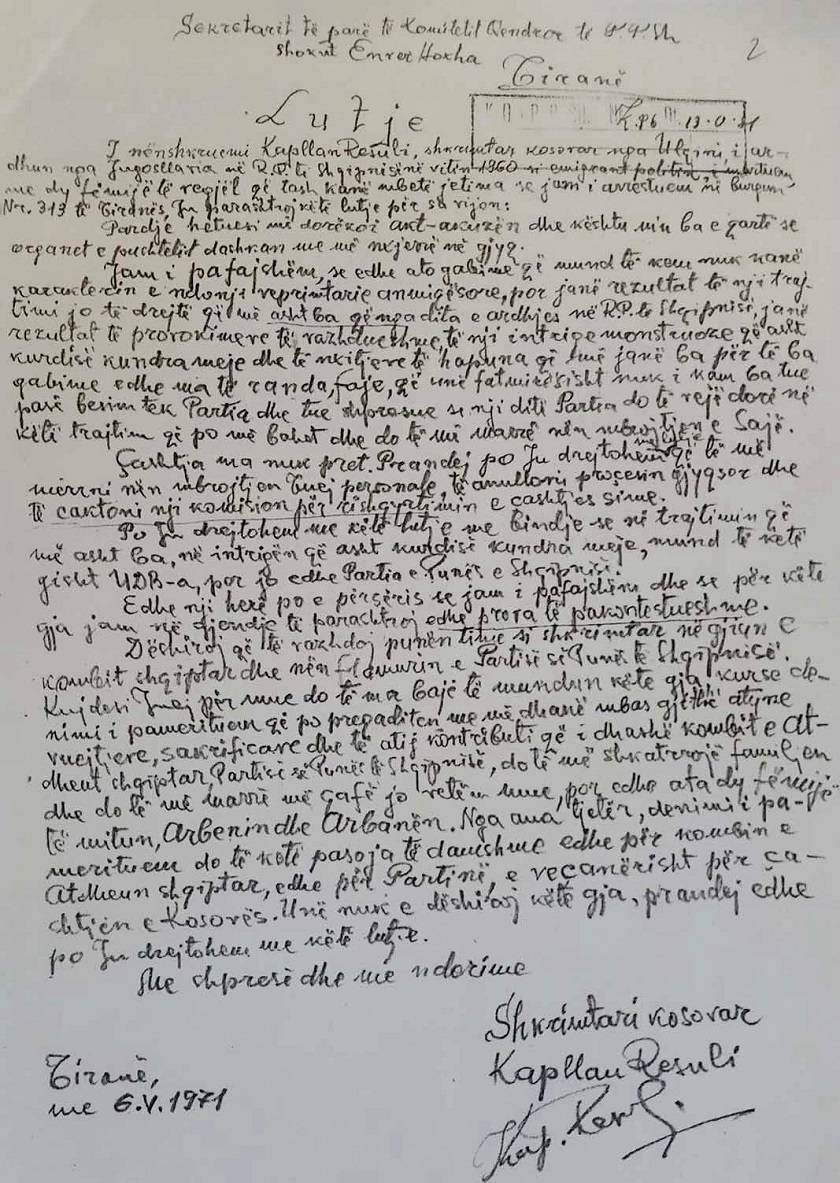 Sekretarit të parë të Komitetit Qendror të P.P.Sh
Shokut Enver Hoxha
2
Tiranë
Lutje
I nënshkruemi Kapllan Resuli, shkrimtar kosovar nga Ulqini, i jar-
dhun nga Jugosllavia në R.P. të Shqipnisë në vitin 1960 si emigrant politik, i martuem
me dy fëmijë të vegjël që tash kanë mbetë jetima se jam i arrestuem në burgun
Nr. 313 të Tiranës, Ju parashtroj këtë lutje për sa vijon:
Pardje hetuesi më dorëzoi akt-akuzën dhe kështu m'u ba e qartë se
organet e pushtetit dashkan me më nxjerrë në gjyq.
Jam i pafajshëm, se edhe ato gabime që mund të kem nuk kanë
karakterin e ndonji veprimtarie anmiqësore, por janë rezultat të nji traj-
timi jo të drejtë që më asht ba qëngadita e ardhjes në R.P. të Shqipnisë, janë
rezultat të provokimeve të vazhdueshme, të nji intrige monstruoze që asht
kurdisë kundra meje dhe të nxitjeve të hapuna që më janë ba për të ba
gabime edhe ma të randa, faje, që unë fatmirësisht nuk i kam ba tue
pasë besim tek Partia dhe tue shpresue se nji ditë Partia do të vejë dorë në
këtë trajtim që po më bahet dhe do të më marrë nën mbrojtjen e Sajë.
Çashtja ma nuk pret. Prandej po Ju drejtohem që të më
merrni nën mbrojtjen Tuej personale, të anulloni procesin gjyqsor dhe
të caktoni nji komision për rishqyrtimin e çashtjes sime.
Po Ju drejtohem me këtë lutje me bindje se në trajtimin që
më asht ba, në intrigën që asht kurdisë kundra meje, mund të ketë
gisht UDB-a, por jo edhe Partia e Punës e Shqipnisë.
Edhe nji herë po e përsëris se jam i pafajshëm dhe se për këtë
gja jam në gjendje të parashtroj edhe prova të pakontestueshme.
Dëshiroj që të vazhdoj punën time si shkrimtar në gjiun e
kombit shqiptar dhe nën flamurin e Partisë së Punës të Shqipnisë.
Kujdesi Juej për mue do të ma bajë të mundun këtë gja, kurse dë-
nimi i pamerituem që po pregaditen me më dhanë mbas gjithë atyne
vuejtjeve, sakrificave dhe të atij kontributi që i dhashë kombit e At-
dheut shqiptar, Partisë së Punës të Shqipnisë, do të më shkatrrojë familjen
dhe do të më marrë më qafë jo vetëm mue, por edhe ata dy fëmijë
të mitun, Arbenin dhe Arbanën. Nga ana tjetër, denimi i pa-
merituem do të ketë pasoja të damshme edhe për kombin e
Atdheun shqiptar, edhe për Partinë, e veçanërisht për ça-
shtjen e Kosovës. Unë nuk e dëshiroj këtë gja, prandej edhe
po Ju drejtohem me këtë lutje.
Me shpresë dhe me nderime
Shkrimtari kosovar
Kapllan Resuli
Kap. Resuli
Tiranë,
me 6.V.1971